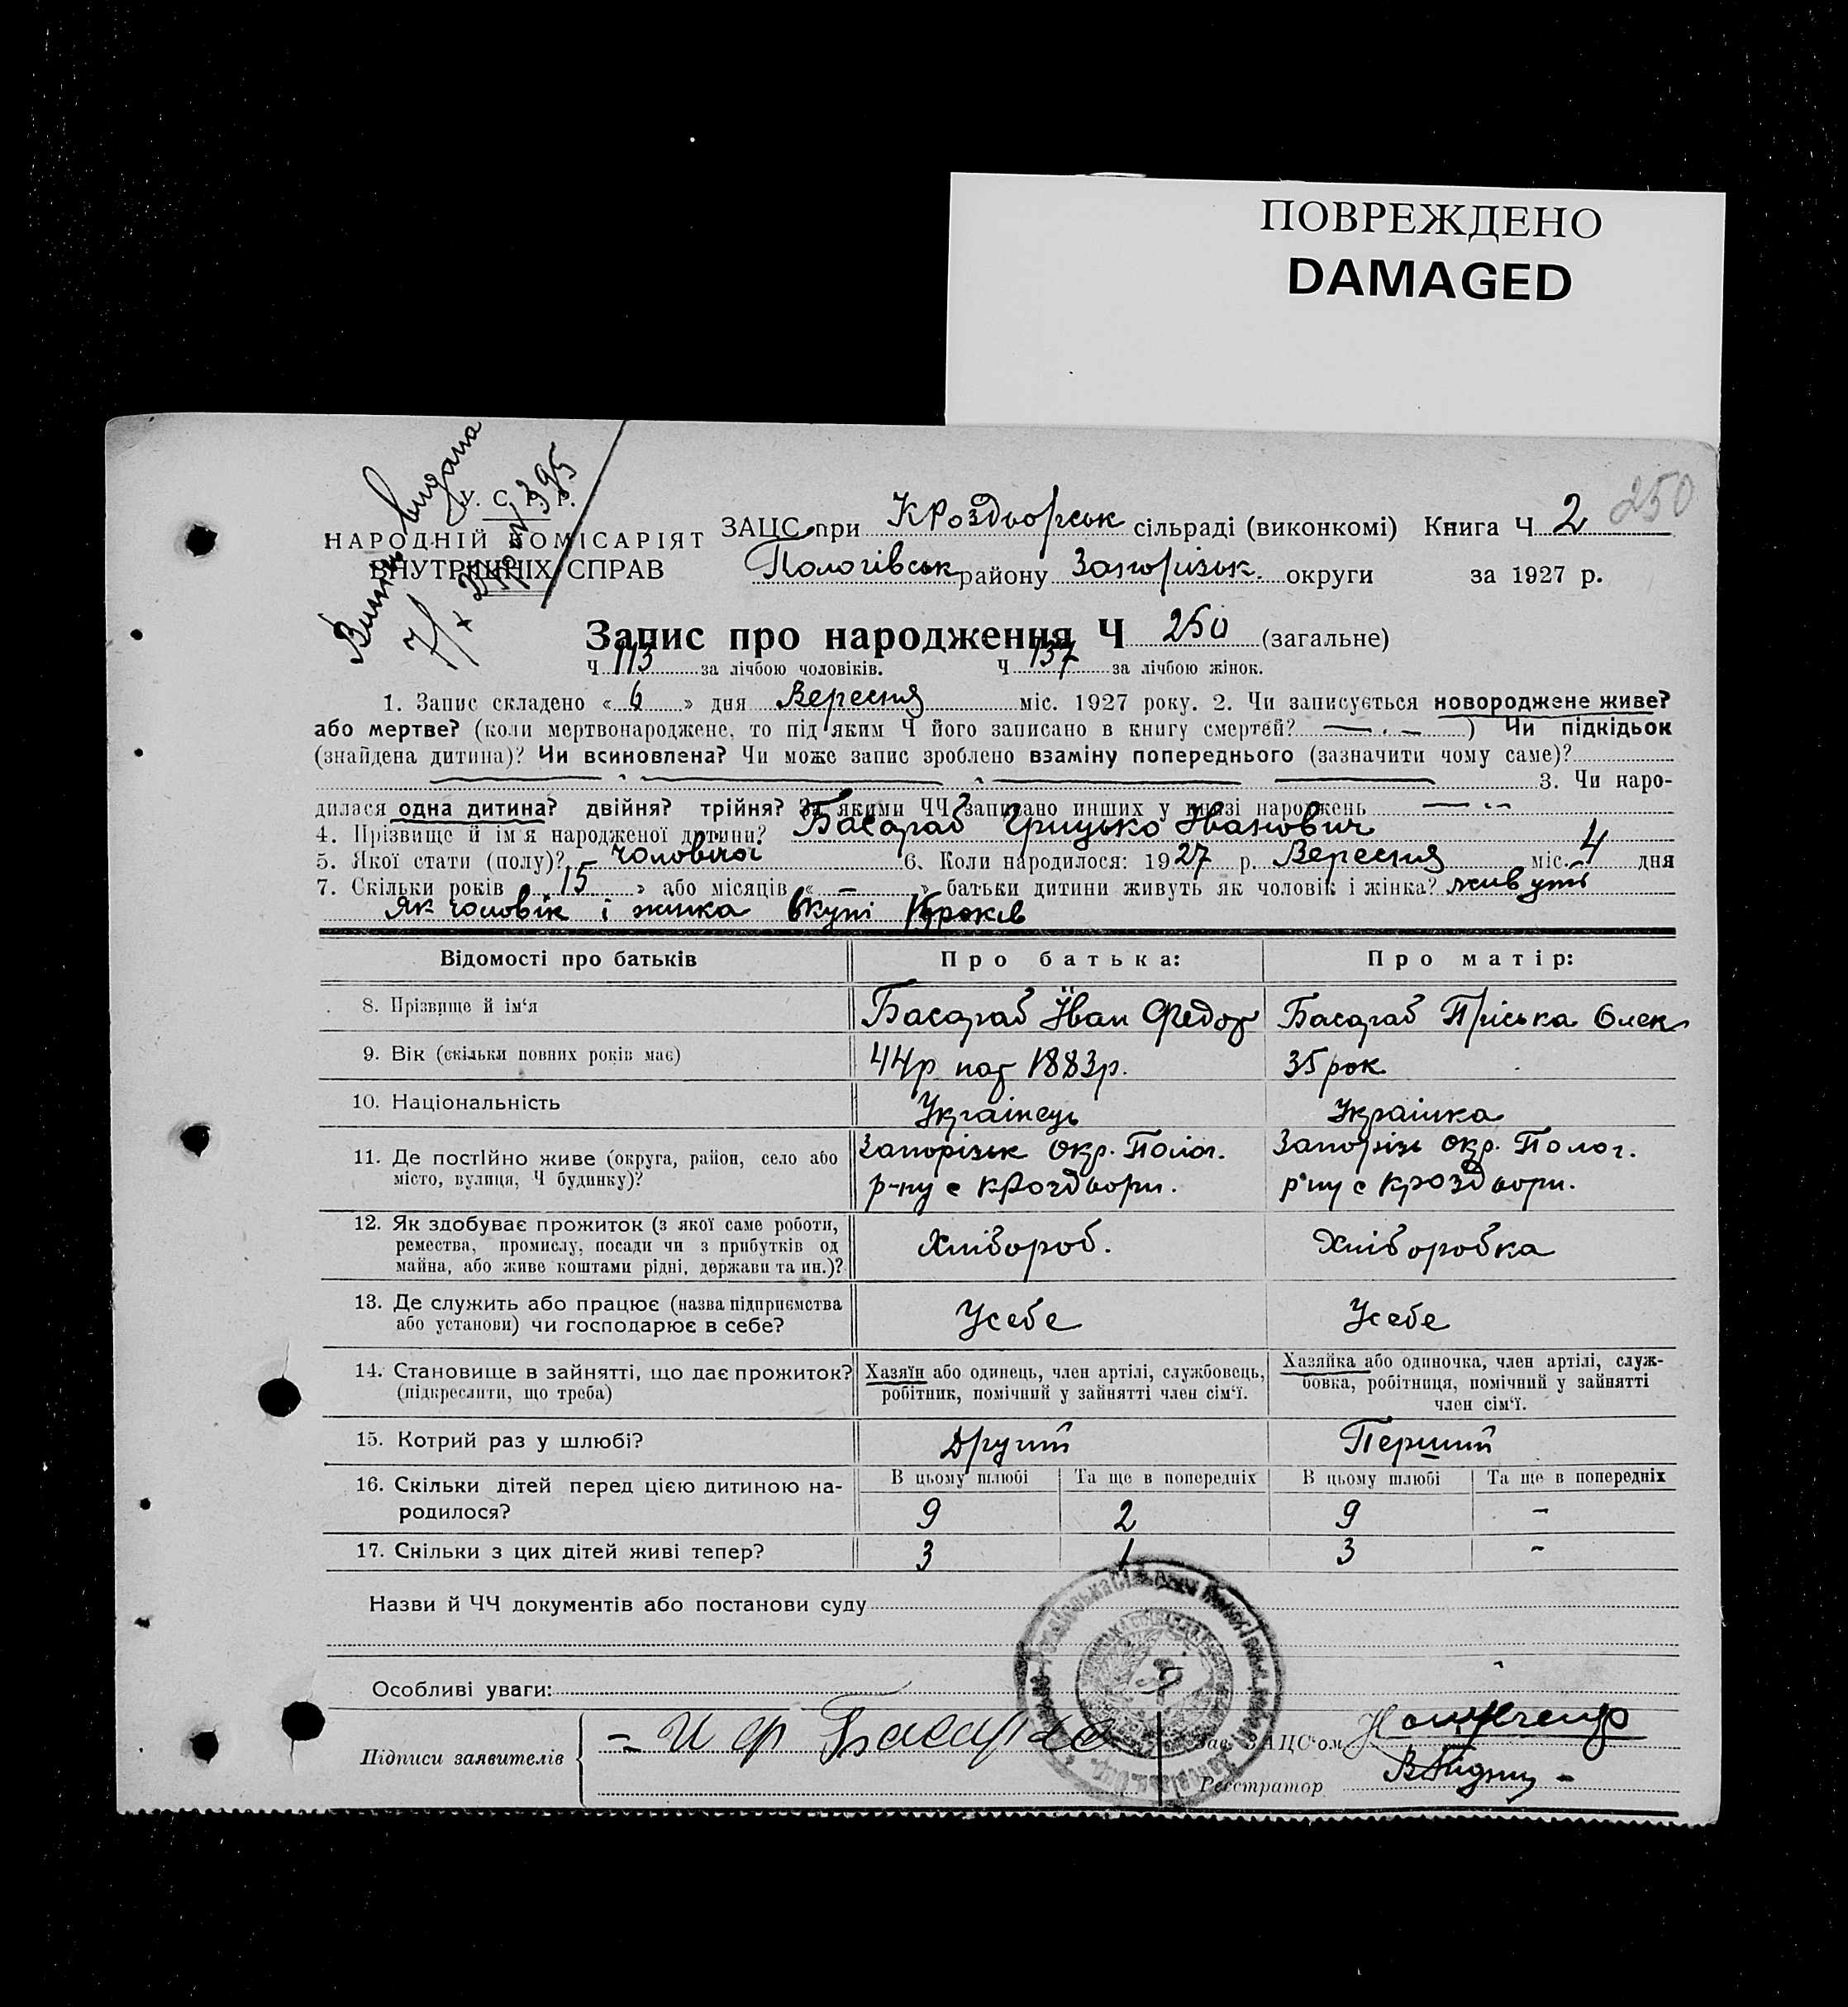 ПОВРЕЖДЕНО
DAMAGED
250
видана
У. С. Р. Р.
395
НАРОДНІЙ КОМІСАРІЯТ
ВНУТРІШНІХ СПРАВ
ЗАЦС при КРоздорськ сільраді (виконкомі) Книга Ч 2
Пологівськ району Запорізьк. округи за 1927 р.
Запис про народження Ч 250 (загальне)
Ч 113 за лічбою чоловіків. Ч 137 за лічбою жінок.
1. Запис складено « 6 » дня Вересня міс. 1927 року. 2. Чи записується новороджене живе?
або мертве? (коли мертвонароджене, то під яким Ч його записано в книгу смертей? — . — ) Чи підкідьок
(знайдена дитина)? Чи всиновлена? Чи може запис зроблено взаміну попереднього (зазначити чому саме)?
3. Чи наро-
дилася одна дитина? двійня? трійня? За якими ЧЧ записано инших у книзі народжень
4. Прізвище й ім'я народженої дитини? Басараб Грицько Іванович
5. Якої стати (полу)? чоловічої 6. Коли народилося: 1927 р. Вересня міс. 4 дня
7. Скільки років « 15 » або місяців « – » батьки дитини живуть як чоловік і жінка? живуть
як чоловік і жинка вкупі 15 років
Відомості про батьків Про батька: Про матір:
8. Прізвище й ім'я Басараб Іван Федор Басараб Пріська Олек
9. Вік (скільки повних років має) 44р нар 1883р. 35 рок
10. Національність Українець Украінка
11. Де постійно живе (округа, район, село або Запорізьк Окр. Полог. Запоріз Окр. Полог.
місто, вулиця, Ч будинку)? р-ну с КРоздори. р-ну с КРоздори.
12. Як здобуває прожиток (з якої саме роботи,
ремества, промислу, посади чи з прибутків од Хлібороб. Хліборобка
майна, або живе коштами рідні, держави та ин.)?
13. Де служить або працює (назва підприємства Усебе Усебе
або установи) чи господарює в себе?
14. Становище в зайнятті, що дає прожиток? Хазяїн або одинець, член артілі, службовець, Хазяйка або одиночка, член артілі, служ-
(підкреслити, що треба) робітник, помічний у зайнятті член сім'ї. бовка, робітниця, помічний у зайнятті
член сім'ї.
15. Котрий раз у шлюбі? Другий Перший
16. Скільки дітей перед цією дитиною на- В цьому шлюбі Та ще в попередніх В цьому шлюбі Та ще в попередніх
родилося? 9 2 9 –
17. Скільки з цих дітей живі тепер? 3 1 3 –
Назви й ЧЧ документів або постанови суду
Особливі уваги:
Підписи заявителів И Ф Басараб Зав. ЗАЦС'ом
Реєстратор